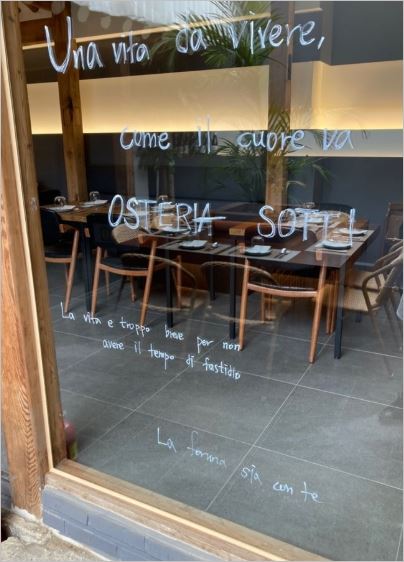 Una vita da vivere,
come il cuore va
OSTERIA SOTTI
La vita e troppo breve per non
avere il tempo di fastidio
La forma sia con te